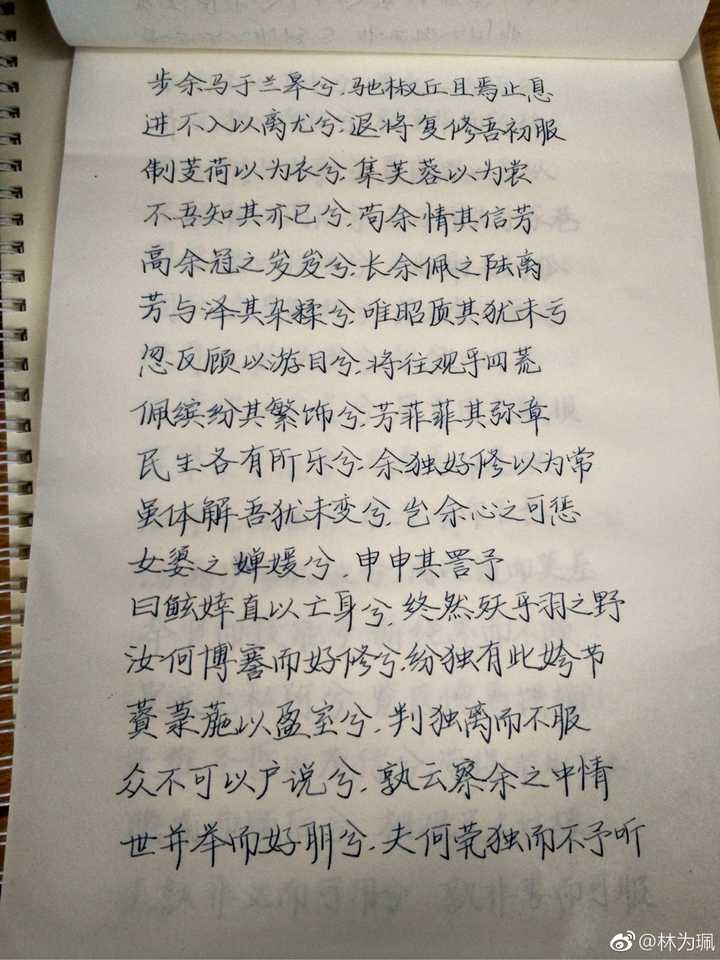 步余马于兰皋兮,驰椒丘且焉止息
进不入以离尤兮,退将复修吾初服
制芰荷以为衣兮,集芙蓉以为裳
不吾知其亦已兮,苟余情其信芳
高余冠之岌岌兮,长余佩之陆离
芳与泽其杂糅兮,唯昭质其犹未亏
忽反顾以游目兮,将往观乎四荒
佩缤纷其繁饰兮,芳菲菲其弥章
民生各有所乐兮,余独好修以为常
虽体解吾犹未变兮,岂余心之可惩
女媭之婵媛兮,申申其詈予
曰鲧婞直以亡身兮,终然殀乎羽之野
汝何博謇而好修兮,纷独有此姱节
薋菉葹以盈室兮,判独离而不服
众不可以户说兮,孰云察余之中情
世并举而好朋兮,夫何茕独而不予听
@林为珮